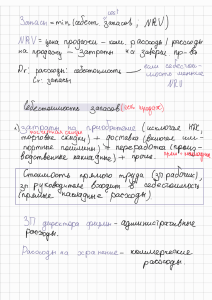 cost
Запасы = min (себест запасов, NRV)
NRV = цена продажи - ком. расходы / расходы
на продажу - затраты на заверш. пр-ва
Dr. расходы: себестоимость
Cr запасы
NRV
Себестоимость запасов (
затраты на приобретение (исключая НДС,
торговые скидки) + доставка (включая им-
портные пошлины) + переработка (произ-
водственные накладные) + прочие.
Стоимость прямого труда (ЗП рабочих),
ЗП руководителя входит в себестоимость
(прямые накладные расходы)
ЗП директора фирмы - административные
расходы.
Расходы на хранение - коммерческие
расходы.